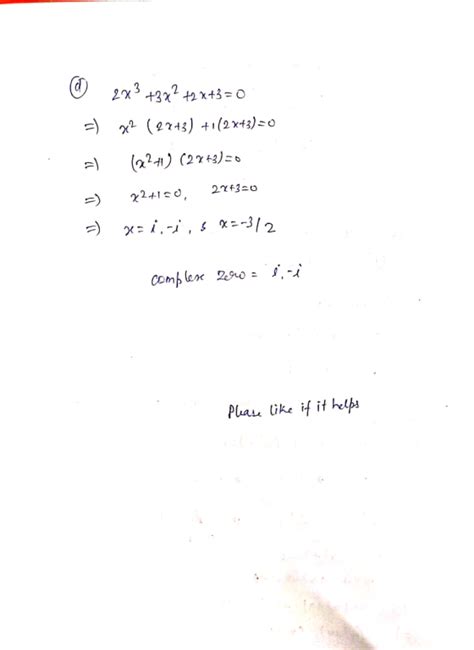 (d)
2x³ +3x² +2x+3=0
=) x² (2x+3) +1(2x+3)=0
=) (x²+1) (2x+3)=0
=) x²+1=0, 2x+3=0
=) x= i,-i, & x=-3/2
complex zero = i,-i
Please like if it helps